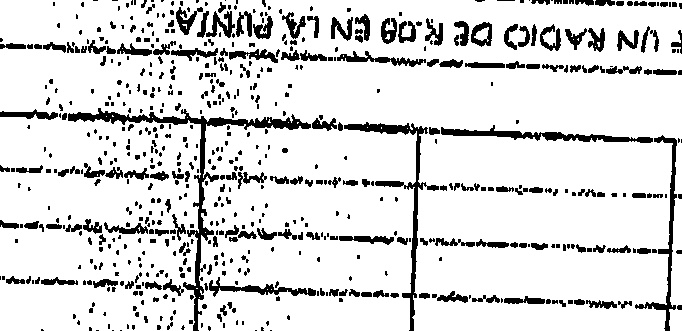 UN RADIO DE R.08 EN LA PUNTA